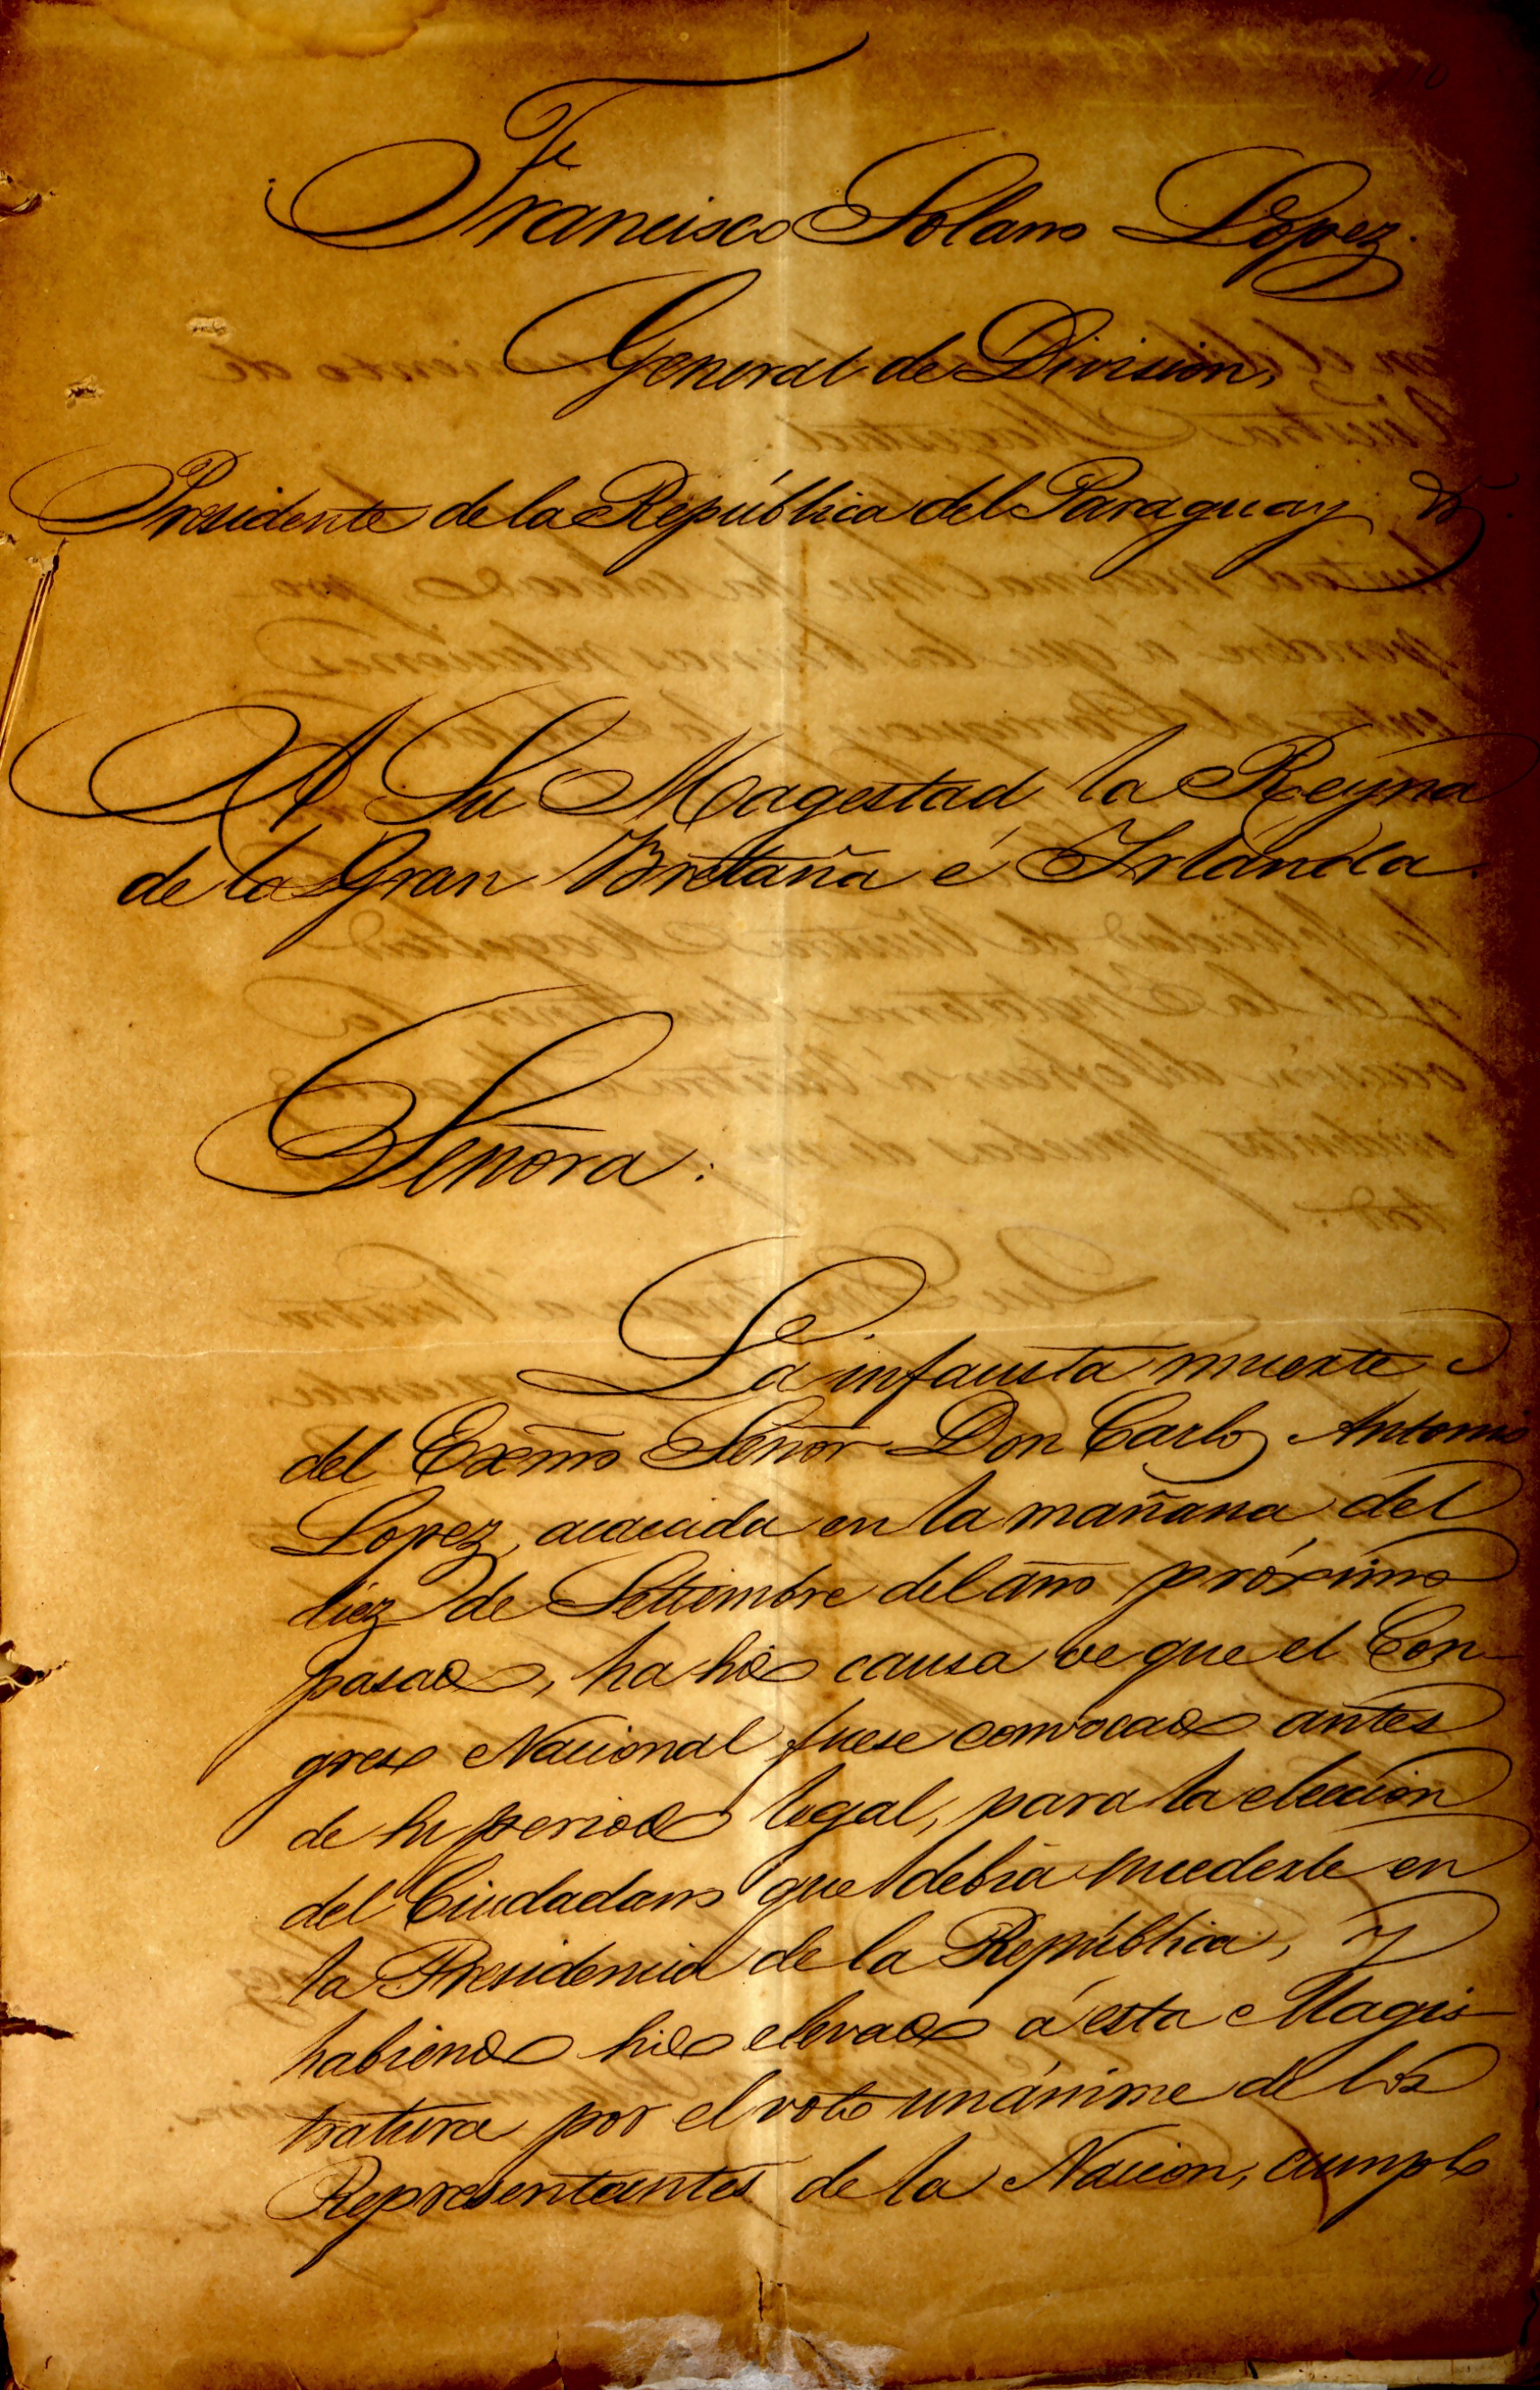 Francisco Solano López.
General de Division,
Presidente de la República del Paraguay &.
A Su Magestad la Reyna
de la Gran Bretaña é Irlanda.
Señora:
La infausta muerte
del Exmo Señor Don Carlos Antonio
Lopez, acaecida en la mañana del
diez de Setiembre del año próximo
pasado, ha sido causa de que el Con-
greso Nacional fuese convocado antes
de su periodo legal, para la eleccion
del Ciudadano que debia sucederle en
la Presidencia de la República, y
habiendo sido elevado á esta Magis-
tratura por el voto unánime de los
Representantes de la Nacion, cumplo